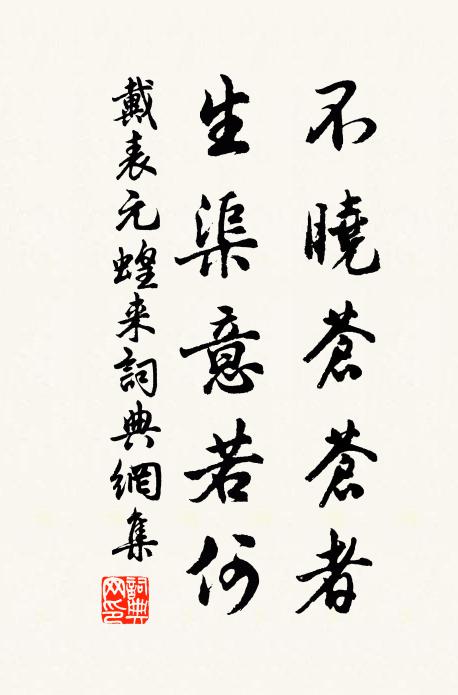 不曉蒼蒼者
生渠意若何
戴表元蝗来詞典網集
詞典网印